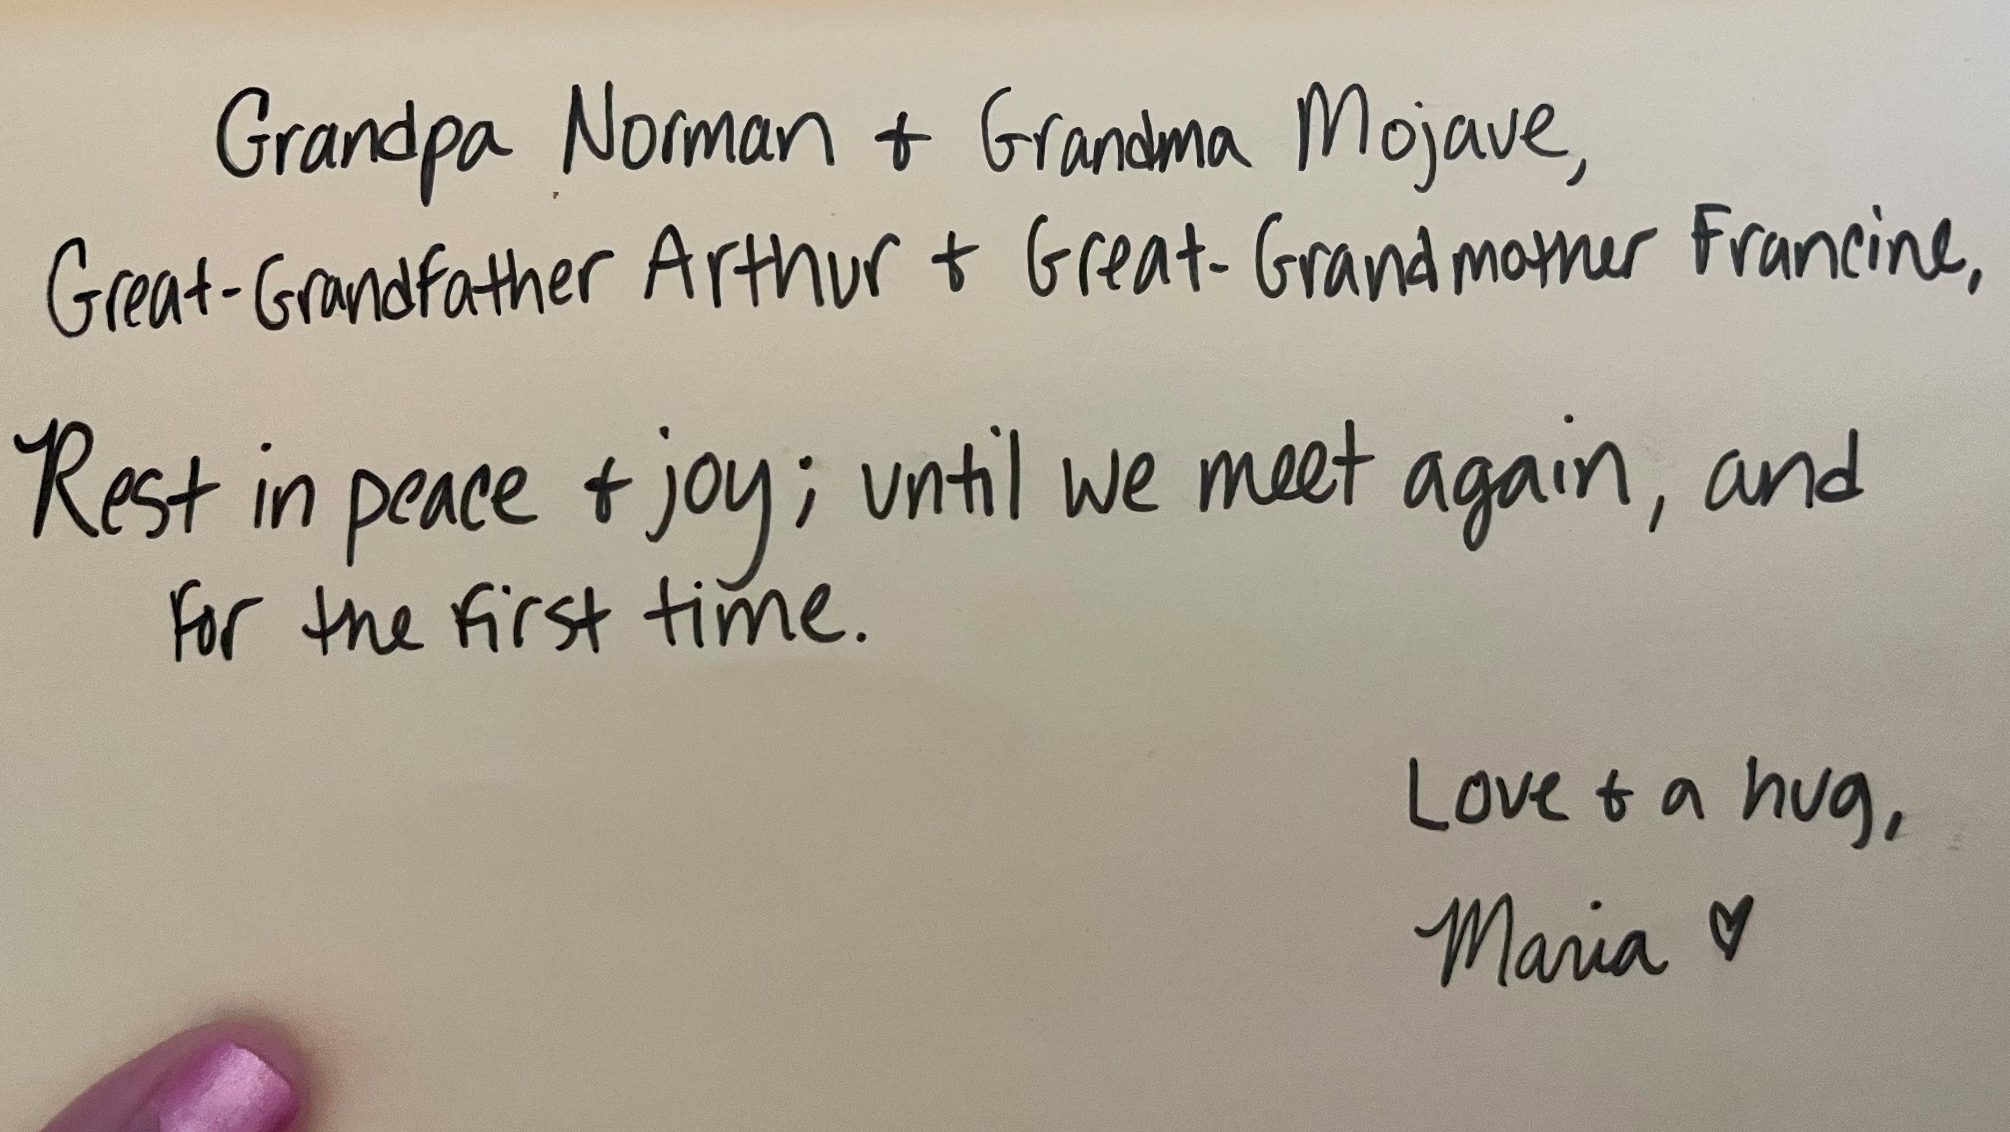 Grandpa Norman + Grandma Mojave,
Great-Grandfather Arthur + Great-Grandmother Francine,
Rest in peace + joy; until we meet again, and
for the first time.
Love + a hug,
Maria ♡